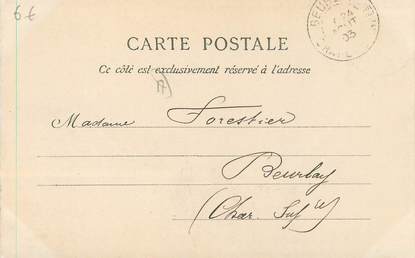 6€
CARTE POSTALE
Ce côté est exclusivement réservé à l'adresse
17
Madame Forestier
Beurlay
(Char. Infre)